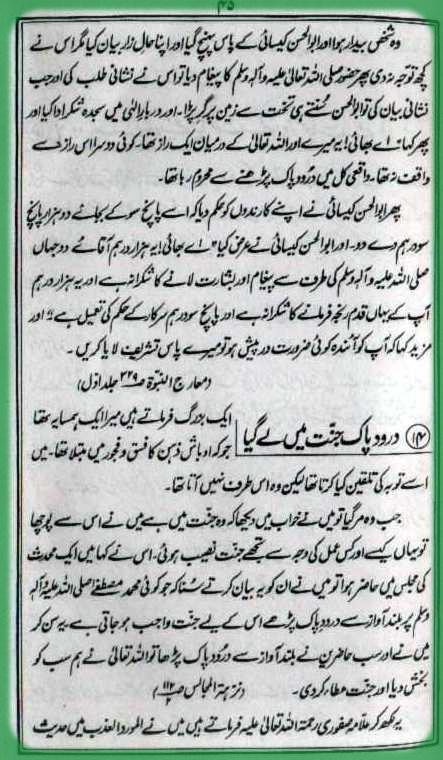 ۴۵
وہ شخص بیدار ہوا اور ابوالحسن کیسائی کے پاس پہنچ گیا اور اپنا حال زار بیان کیا مگر اس نے
کچھ توجہ نہ دی پھر حضور صلی اللہ تعالیٰ علیہ وآلہ وسلم کا پیغام دیا تو اس نے نشانی طلب کی اور جب
نشانی بیان کی تو ابوالحسن سنتے ہی تخت سے زمین پر گر پڑا۔ اور دربار الٰہی میں سجدہ شکر ادا کیا اور
پھر کہا۔ اے بھائی! یہ میرے اور اللہ تعالیٰ کے درمیان ایک راز تھا۔ کوئی دوسرا اس راز سے
واقف نہ تھا۔ واقعی کل میں درود پاک پڑھنے سے محروم رہا تھا۔
پھر ابوالحسن کیسائی نے اپنے کارندوں کو حکم دیا کہ اسے پانچ سو کے بجائے دو ہزار پانچ
سو درہم دے دو۔ اور ابوالحسن کیسائی نے عرض کیا "اے بھائی! یہ ہزار درہم آقائے دو جہاں
صلی اللہ علیہ وآلہ وسلم کی طرف سے پیغام اور بشارت لانے کا شکرانہ ہے اور یہ ہزار درہم
آپ کے یہاں قدم رنجہ فرمانے کا شکرانہ ہے اور پانچ سو درہم سرکار کے حکم کی تعمیل ہے" اور
مزید کہا کہ آپ کو آئندہ کوئی ضرورت درپیش ہو تو میرے پاس تشریف لایا کریں۔
(معارج النبوۃ ص ۳۲۹ جلد اول)
۱۴ درود پاک جنت میں لے گیا
ایک بزرگ فرماتے ہیں میرا ایک ہمسایہ تھا
جو کہ اوباش ذہن کا فسق و فجور میں مبتلا تھا۔ میں
اسے توبہ کی تلقین کیا کرتا تھا لیکن وہ اس طرف نہیں آتا تھا۔
جب وہ مر گیا تو میں نے خواب میں دیکھا کہ وہ جنت میں ہے میں نے اس سے پوچھا
تو یہاں کیسے اور کس عمل کی وجہ سے تجھے جنت نصیب ہوئی۔ اس نے کہا میں ایک محدث
کی مجلس میں حاضر ہوا تو میں نے ان کو یہ بیان کرتے سنا کہ جو کوئی محمد مصطفےٰ صلی اللہ علیہ وآلہ
وسلم پر بلند آواز سے درود پاک پڑھے اس کے لیے جنت واجب ہو جاتی ہے۔ یہ سن کر
میں نے اور سب حاضرین نے بلند آواز سے درود پاک پڑھا تو اللہ تعالیٰ نے ہم سب کو
بخش دیا اور جنت عطا کر دی۔ (نزہۃ المجالس ص ۱۱۲)
یہ لکھ کر علامہ صفوری رحمۃ اللہ تعالیٰ علیہ فرماتے ہیں میں نے المورد العذب میں حدیث